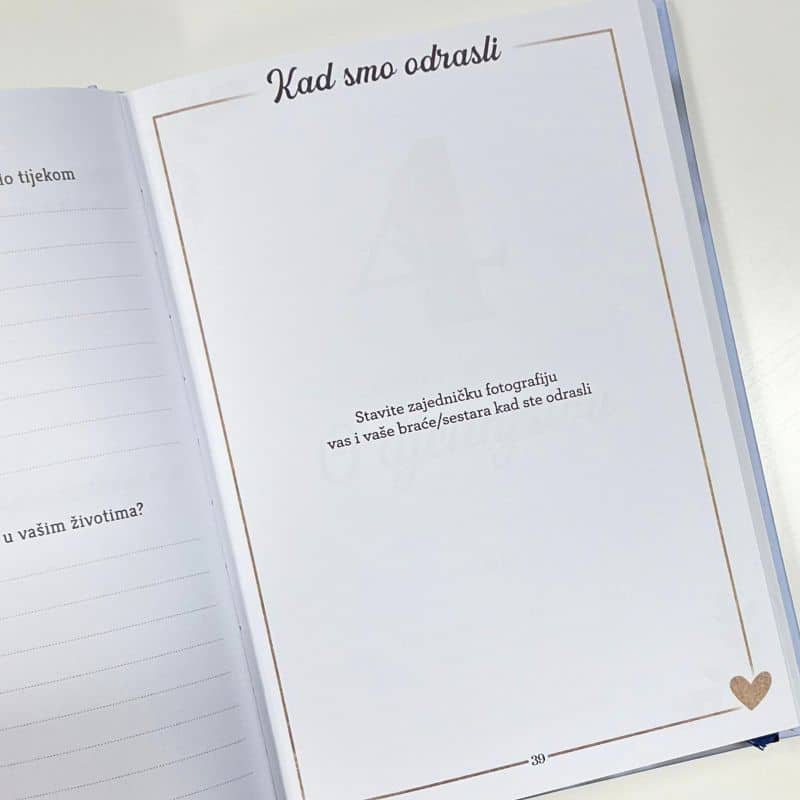 tijekom
u vašim životima?
Kad smo odrasli
Stavite zajedničku fotografiju
vas i vaše braće/sestara kad ste odrasli
39